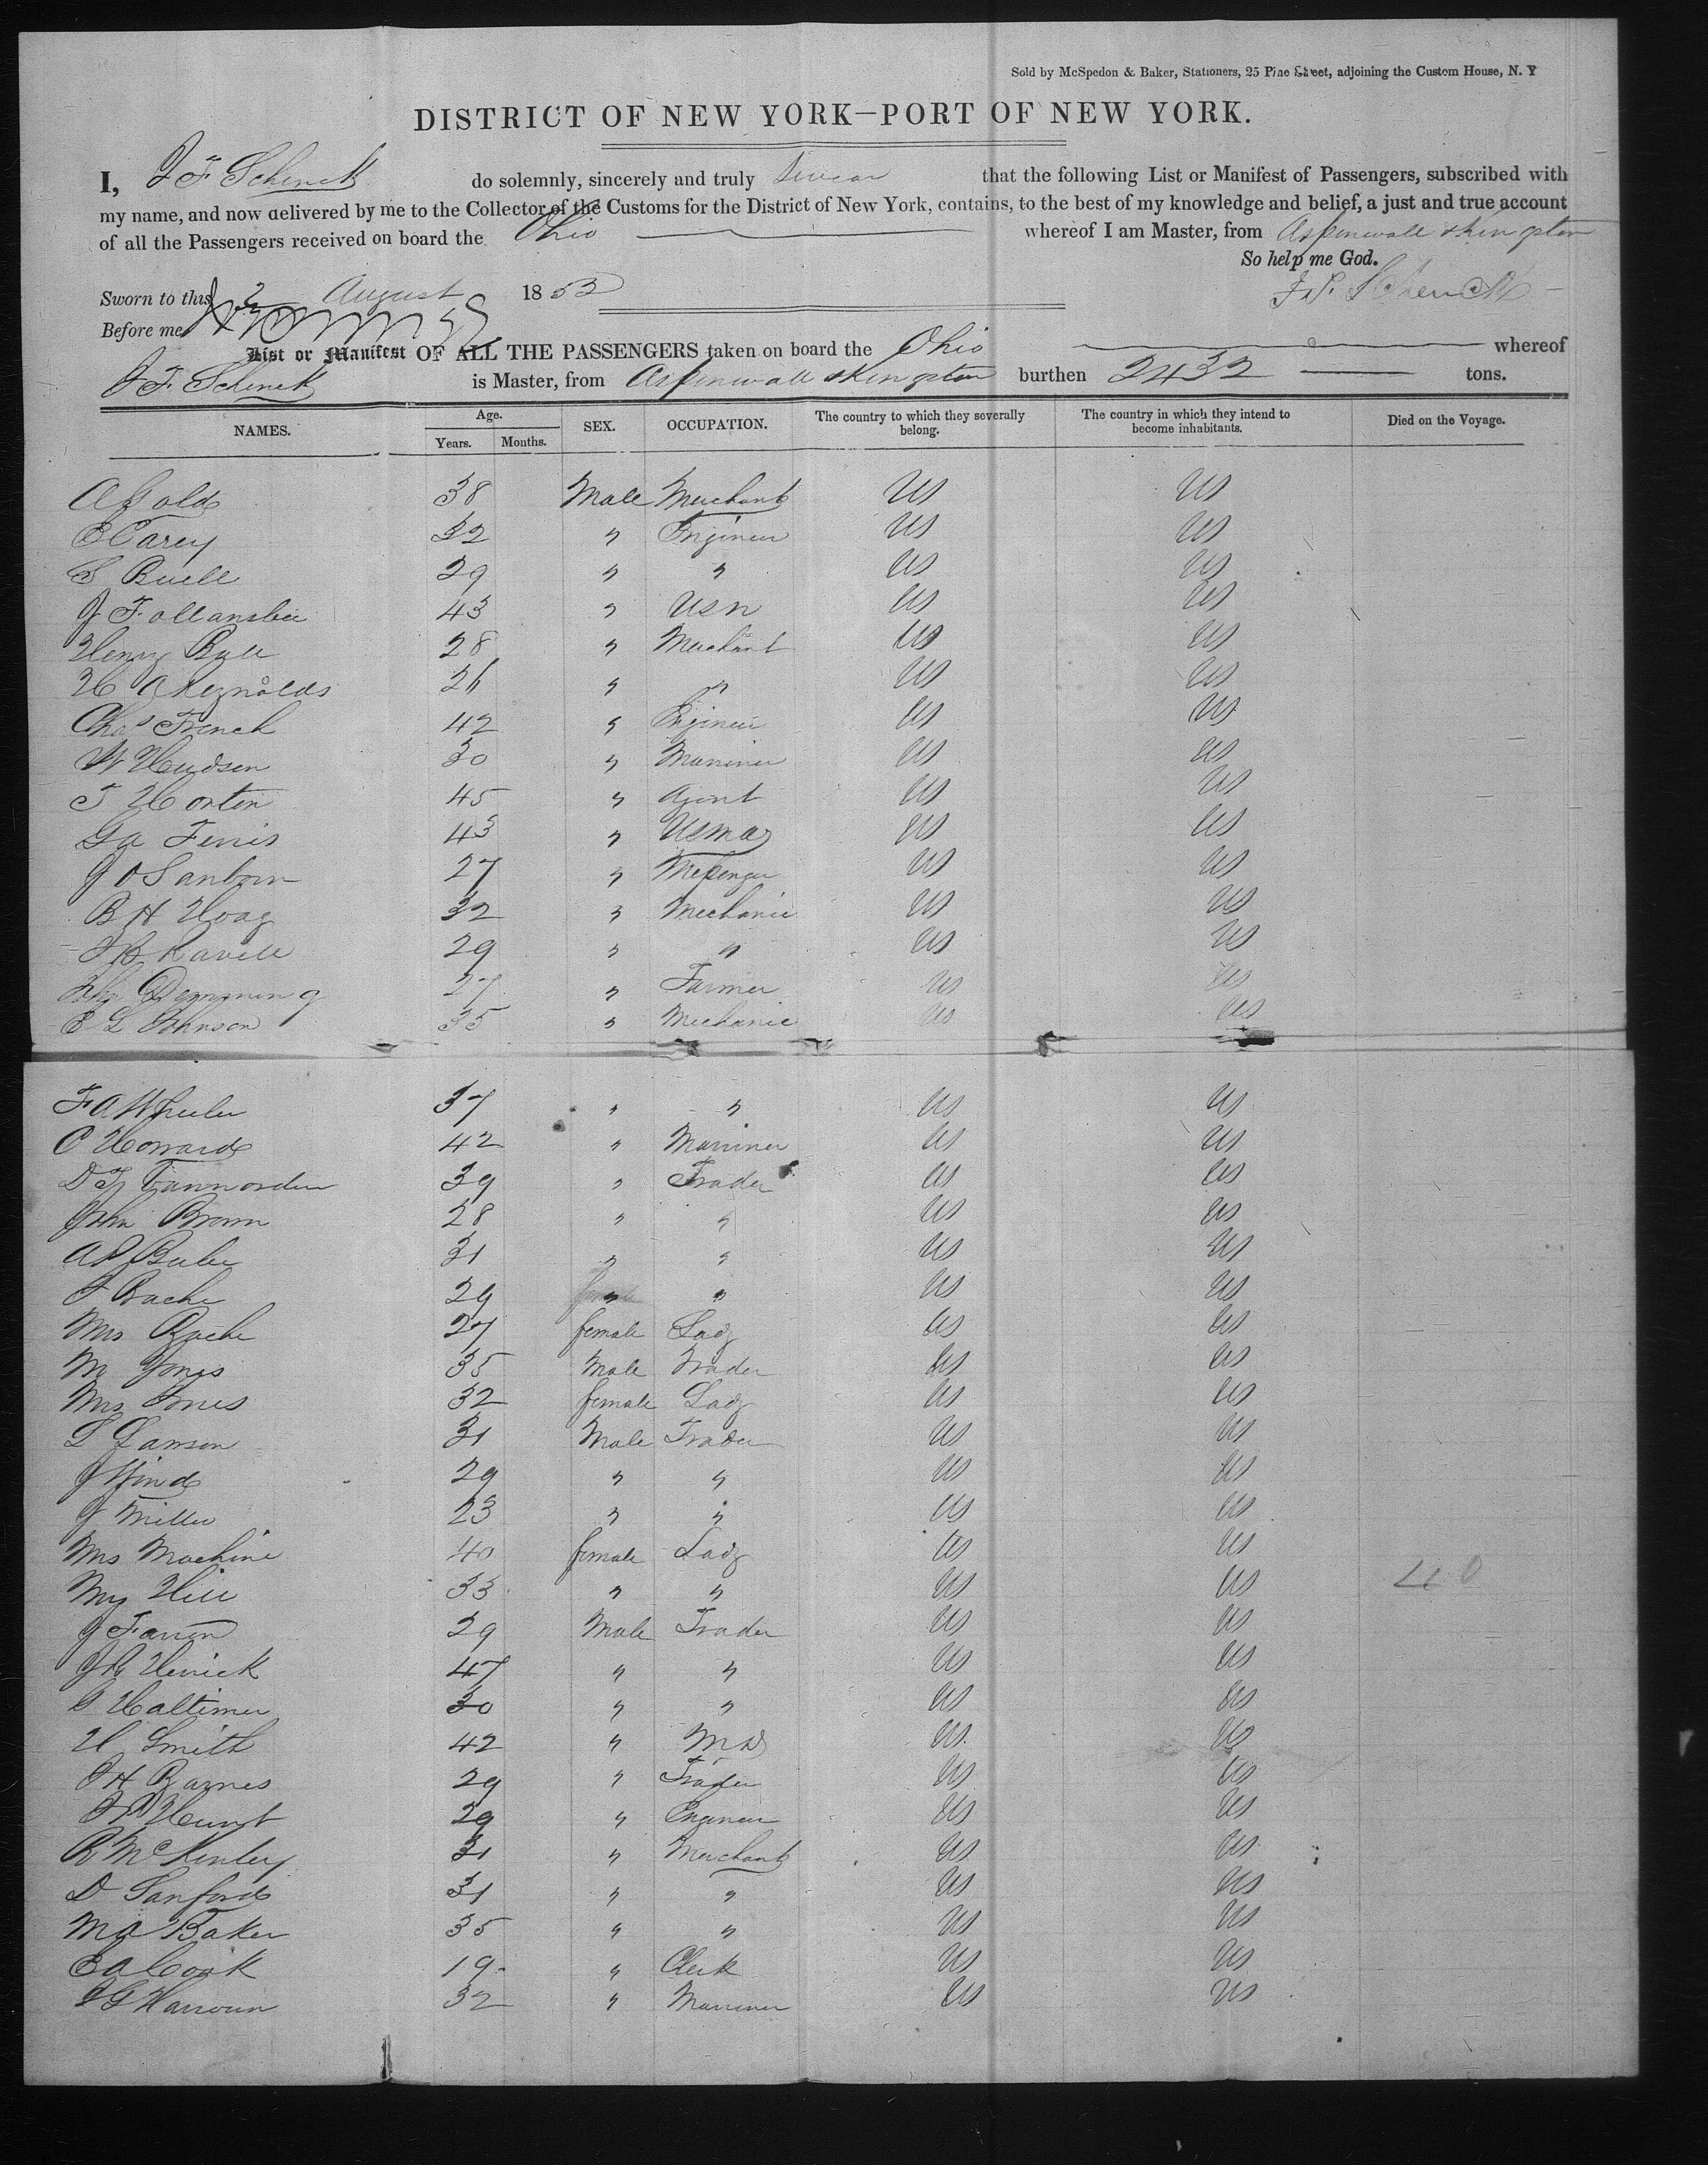 Sold by McSpedon & Baker, Stationers, 25 Pine Street, adjoining the Custom House, N. Y
DISTRICT OF NEW YORK—PORT OF NEW YORK.
I, J F Schenck do solemnly, sincerely and truly Swear that the following List or Manifest of Passengers, subscribed with
my name, and now delivered by me to the Collector of the Customs for the District of New York, contains, to the best of my knowledge and belief, a just and true account
of all the Passengers received on board the Ohio whereof I am Master, from Aspinwall & Kingston
So help me God.
Sworn to this 2 August 1853 J. F. Schenck
Before me
List or Manifest OF ALL THE PASSENGERS taken on board the Ohio whereof
J F Schenck is Master, from Aspinwall & Kingston burthen 2432 tons.
NAMES. Age. Years. Months. SEX. OCCUPATION. The country to which they severally belong. The country in which they intend to become inhabitants. Died on the Voyage.
A Gold 38 Male Merchant US US
E Carey 32 " Engineer US US
S Buell 29 " " US US
J Follansbee 43 " USN US US
Henry Bull 28 " Merchant US US
H A Reynolds 26 " " US US
Chas French 42 " Engineer US US
W Hudson 30 " Mariner US US
T Horton 45 " Agent US US
Ga Ferris 43 " US US
J O Sanborn 27 " Messenger US US
B H Hoag 32 " Mechanic US US
Ravell 29 " " US US
Demming 27 " Farmer US US
E L Johnson 35 " Mechanic US US
F A Wheeler 37 " " US US
C Howard 42 " Marriner US US
39 " Trader US US
John Brown 28 " " US US
31 " " US US
J Bache 29 " " US US
Mrs Bache 27 female Lady US US
M Jones 35 Male Trader US US
Mrs Jones 32 female Lady US US
L Lamson 31 Male Trader US US
29 " " US US
J Miller 23 " " US US
Mrs Machine 40 female Lady US US
Mrs Hill 33 " " US US 40
J Farren 29 Male Trader US US
Herrick 47 " " US US
Haltimer 30 " " US US
H Smith 42 " MD US US
J H Barnes 29 " Trader US US
Hunt 29 " Engineer US US
R McKinley 31 " Merchant US US
D Sanford 31 " " US US
M A Baker 35 " " US US
E A Cook 19 " Clerk US US
J G Harroun 32 " Marriner US US